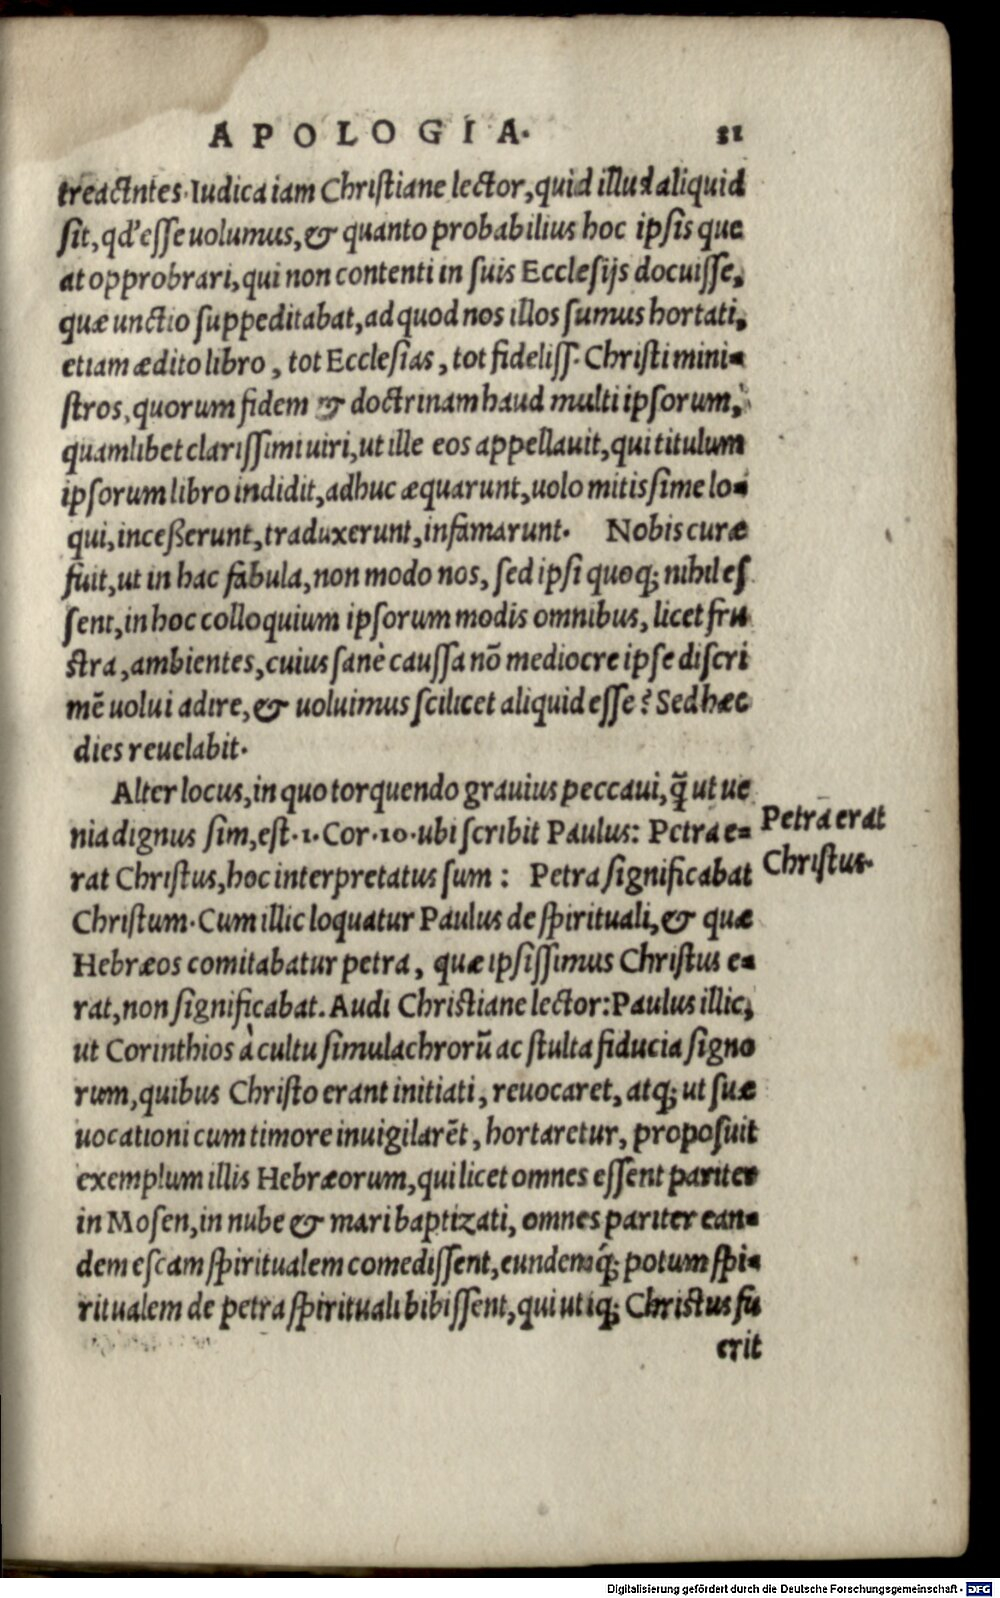 APOLOGIA. 21
treactntes. Iudica iam Christiane lector, quid illud aliquid
sit, qd' esse uolumus, & quanto probabilius hoc ipsis que
at opprobrari, qui non contenti in suis Ecclesijs docuisse,
quæ unctio suppeditabat, ad quod nos illos sumus hortati,
etiam ædito libro, tot Ecclesias, tot fideliss. Christi mini-
stros, quorum fidem & doctrinam haud multi ipsorum,
quamlibet clarissimi uiri, ut ille eos appellauit, qui titulum
ipsorum libro indidit, adhuc æquarunt, uolo mitissime lo-
qui, incesserunt, traduxerunt, infamarunt. Nobis curæ
fuit, ut in hac fabula, non modo nos, sed ipsi quoq; nihil es
sent, in hoc colloquium ipsorum modis omnibus, licet fru
stra, ambientes, cuius sanè caussa nõ mediocre ipse discri
mẽ uolui adire, & uoluimus scilicet aliquid esse? Sed hæc
dies reuelabit.
Alter locus, in quo torquendo grauius peccaui, q̃ ut ue
nia dignus sim, est. 1. Cor. 10. ubi scribit Paulus: Petra e-
rat Christus, hoc interpretatus sum: Petra significabat
Christum. Cum illic loquatur Paulus de spirituali, & quæ
Hebræos comitabatur petra, quæ ipsissimus Christus e-
rat, non significabat. Audi Christiane lector: Paulus illic,
ut Corinthios à cultu simulachrorũ ac stulta fiducia signo
rum, quibus Christo erant initiati, reuocaret, atq; ut suæ
uocationi cum timore inuigilarẽt, hortaretur, proposuit
exemplum illis Hebræorum, qui licet omnes essent pariter
in Mosen, in nube & mari baptizati, omnes pariter ean-
dem escam spiritualem comedissent, eundemq́; potum spi-
ritualem de petra spirituali bibissent, qui utiq; Christus fu
erit
Petra erat
Christus.
Digitalisierung gefördert durch die Deutsche Forschungsgemeinschaft - DFG